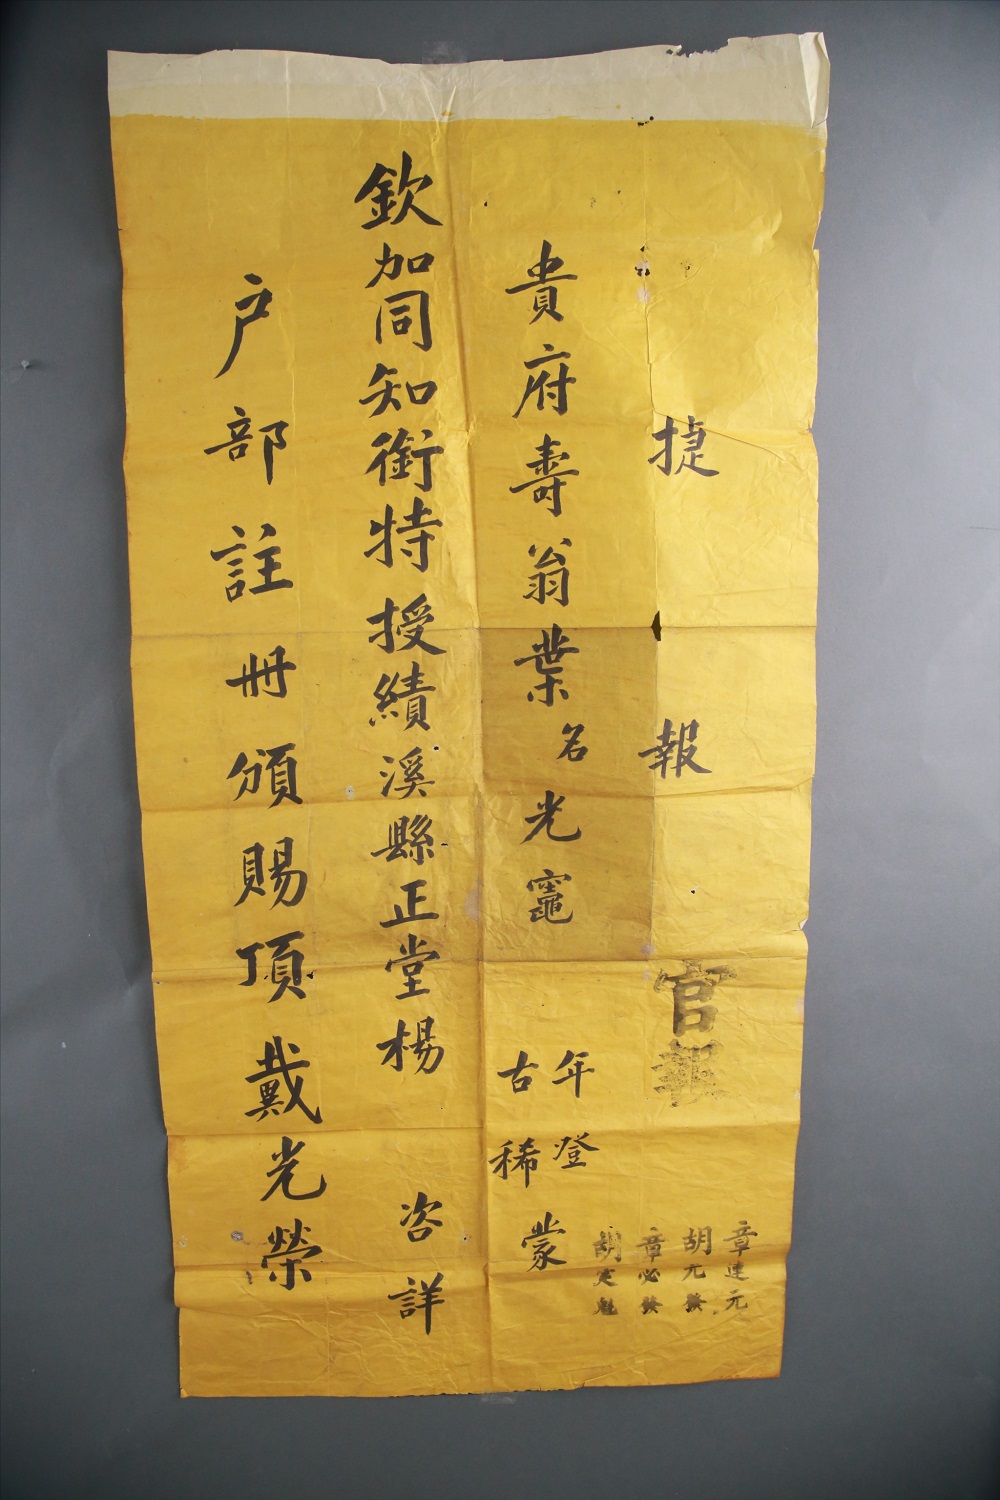 捷報
官報
章連元
胡元發
章必發
胡定魁
貴府壽翁葉名光竈年登古稀蒙
欽加同知銜特授績溪縣正堂楊咨詳
户部註冊頒賜頂戴光榮